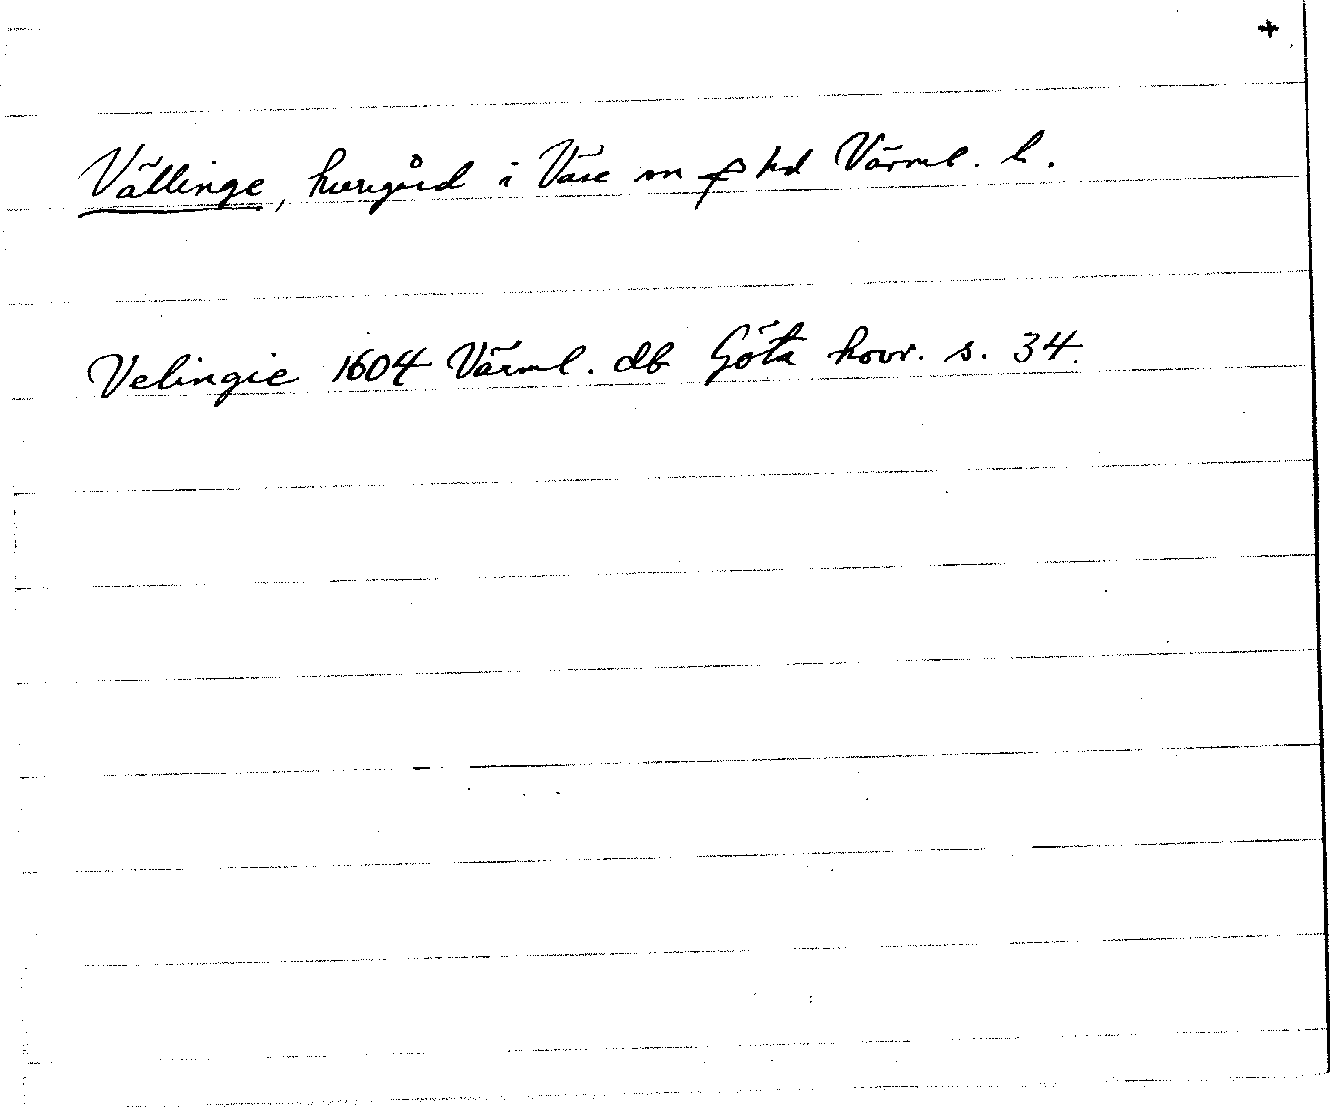 +
Vällinge, herrgård i Väse sn o hd Värml. l.
Velingie 1604 Värml. db Göta hovr. s. 34.